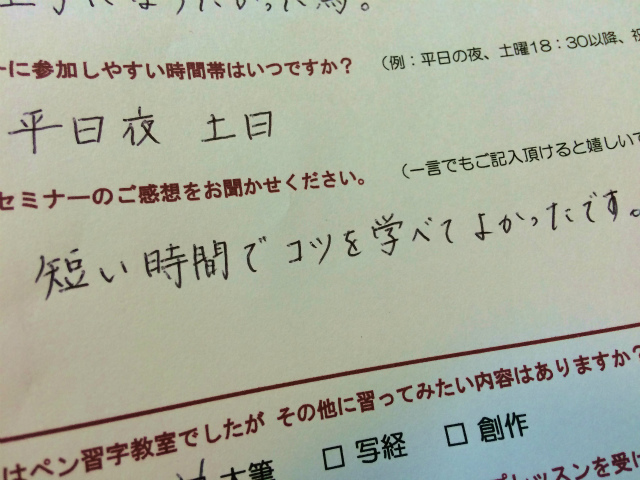 ーに参加しやすい時間帯はいつですか？ （例：平日の夜、土曜18：30以降、祝
平日夜 土日
セミナーのご感想をお聞かせください。 （一言でもご記入頂けると嬉しいで
短い時間でコツを学べてよかったです。
はペン習字教室でしたが その他に習ってみたい内容はありますか？
大筆 □ 写経 □ 創作
レッスンを受け